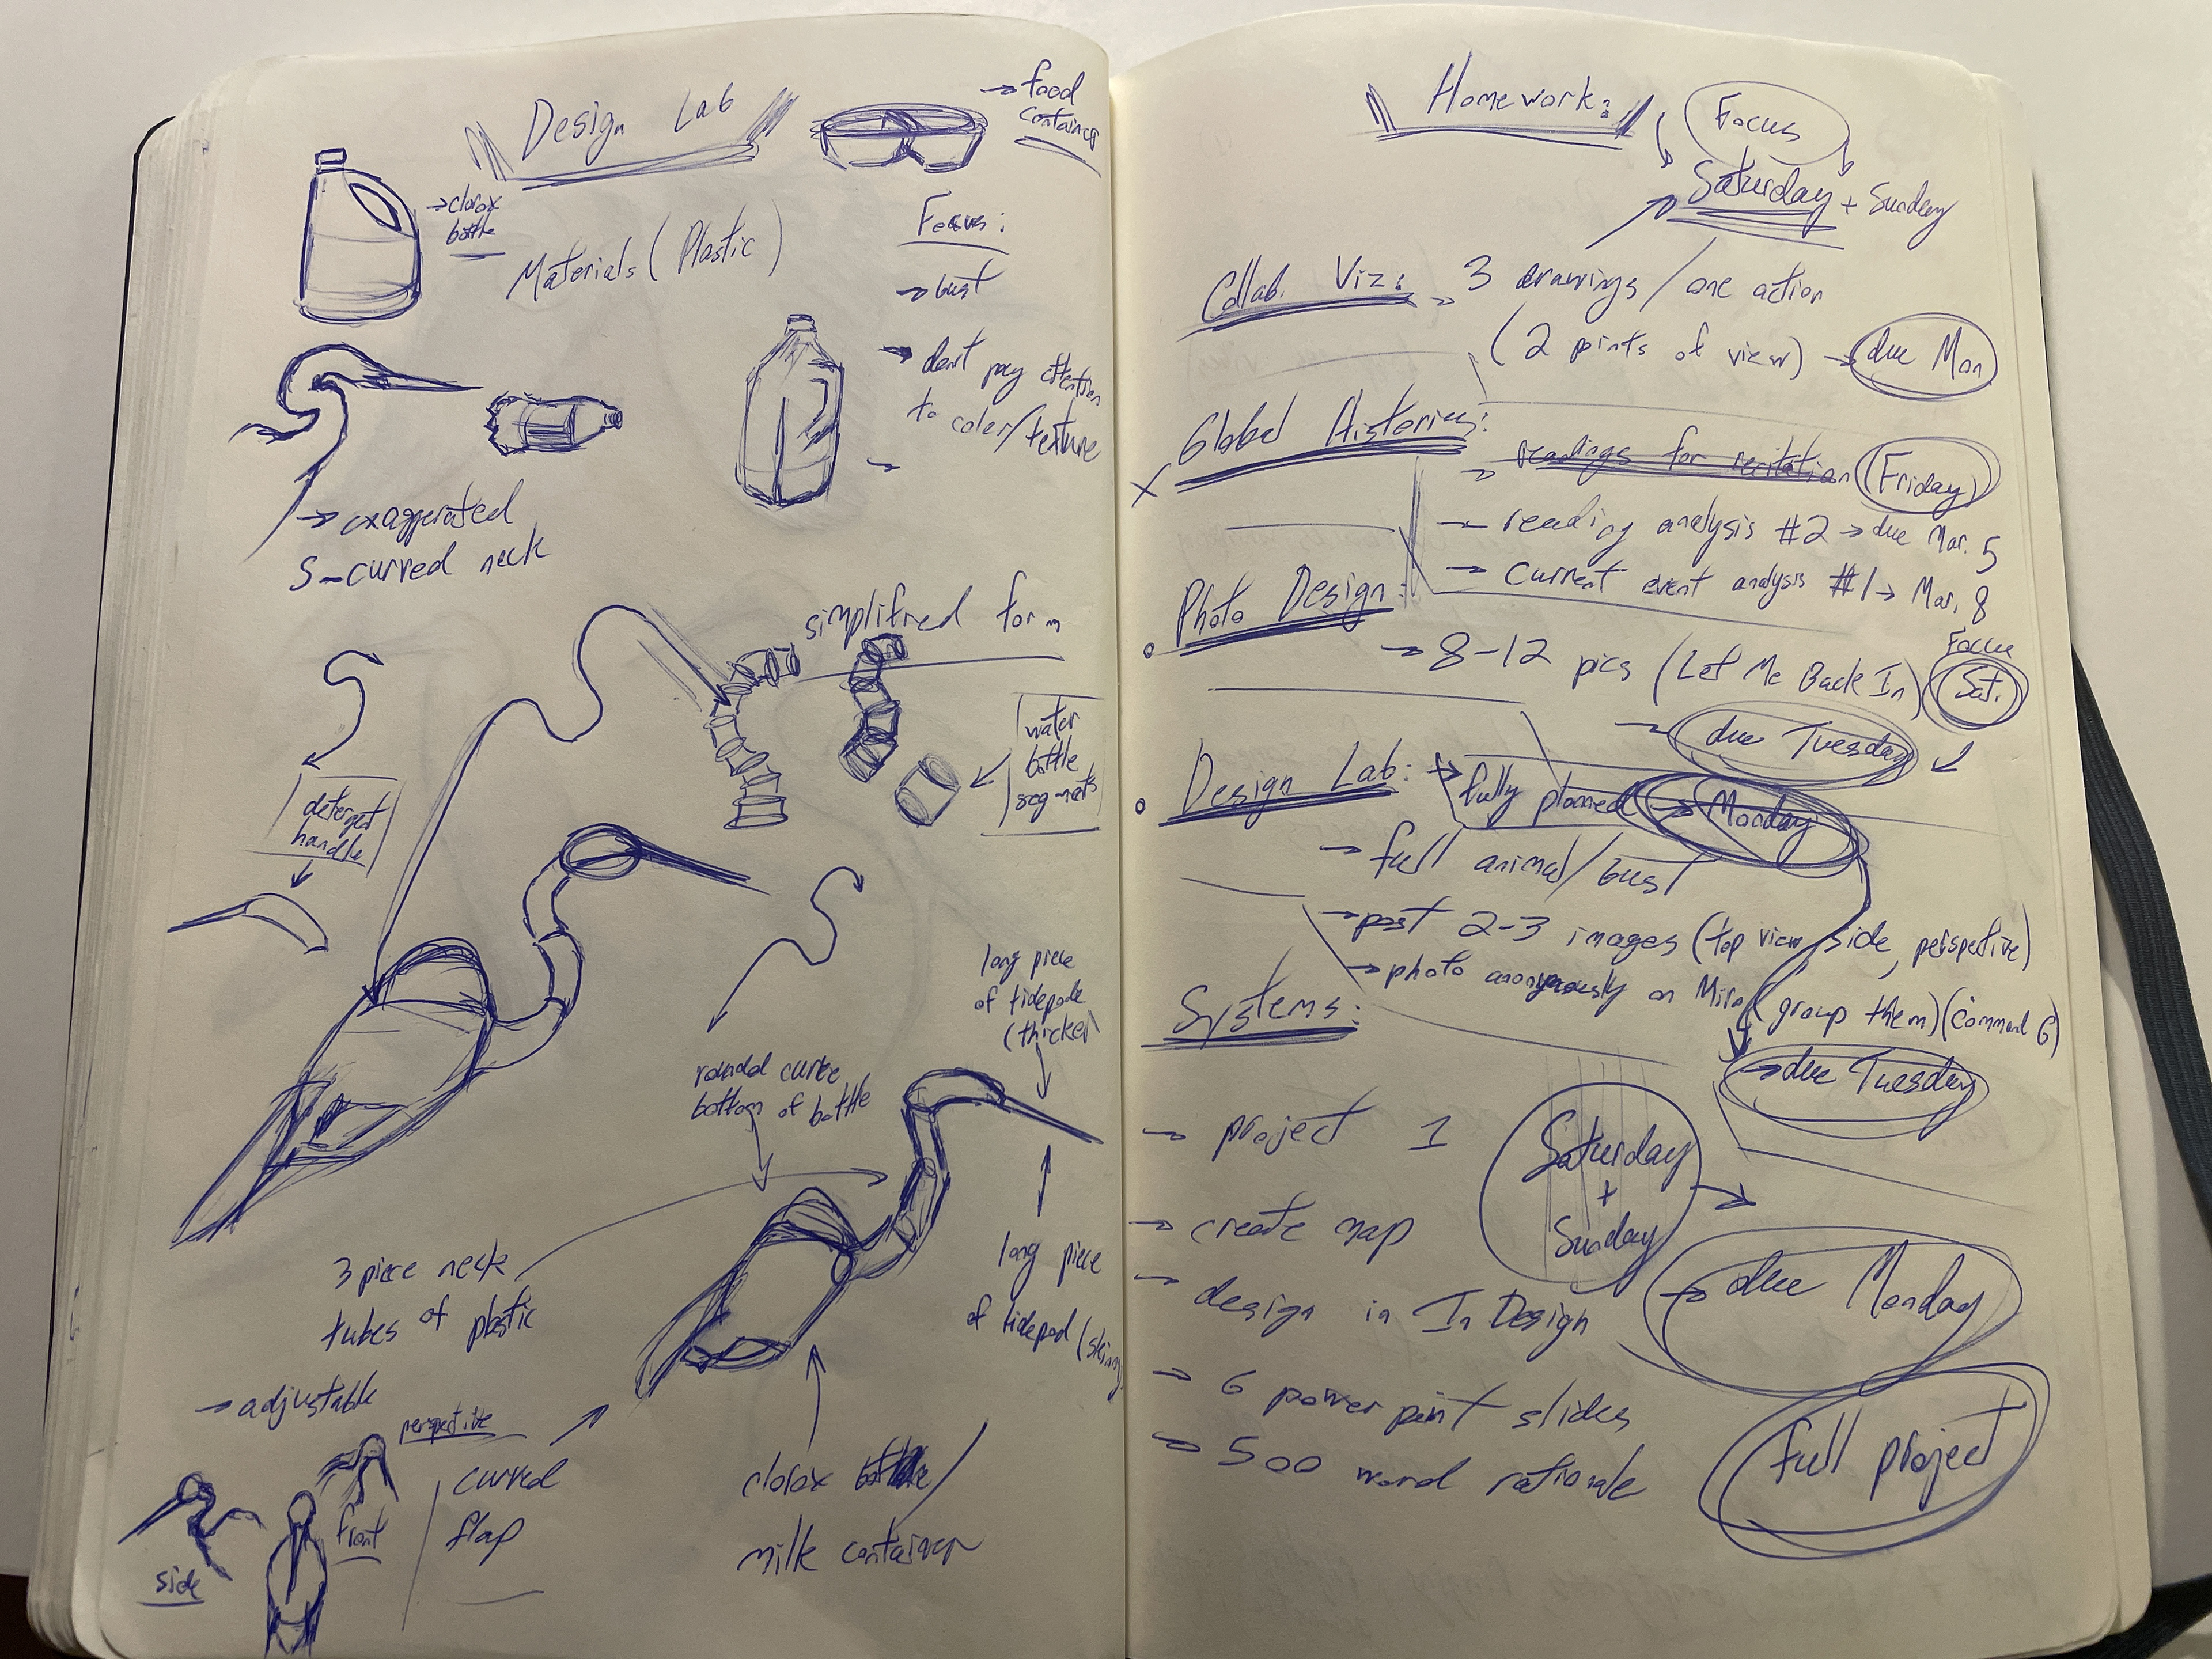 Design Lab
→ food
container
→ clorox
bottle
Materials (Plastic)
Focus:
→ bust
→ dont pay attention
to color/texture
→
→ exaggerated
S-curved neck
simplified form
water
bottle
segments
detergent
handle
long piece
of tidepode
(thicker)
rounded curve
bottom of bottle
3 piece neck
tubes of plastic
long piece
of tidepod (skinny
→ adjustable
perspective
curved
flap
front
side
clorox bottle/
milk container
Homework:
Focus
Saturday + Sunday
Collab. Viz: → 3 drawings/one action
(2 points of view) → due Mon
x Global Histories:
→ readings for recitation (Friday)
→ reading analysis #2 → due Mar. 5
→ current event analysis #1 → Mar. 8
Photo Design:
→ 8-12 pics (Let Me Back In)
Focus
Sat.
→ due Tuesday
Design Lab: → fully planned → Monday
→ full animal/bust
→ post 2-3 images (top view, side, perspective)
→ photo anonymously on Miro (group them) (command G)
→ due Tuesday
Systems:
→ project 1
Saturday
+
Sunday
→ create map
→ design in InDesign
→ due Monday
→ 6 power point slides
→ 500 word rationale
full project